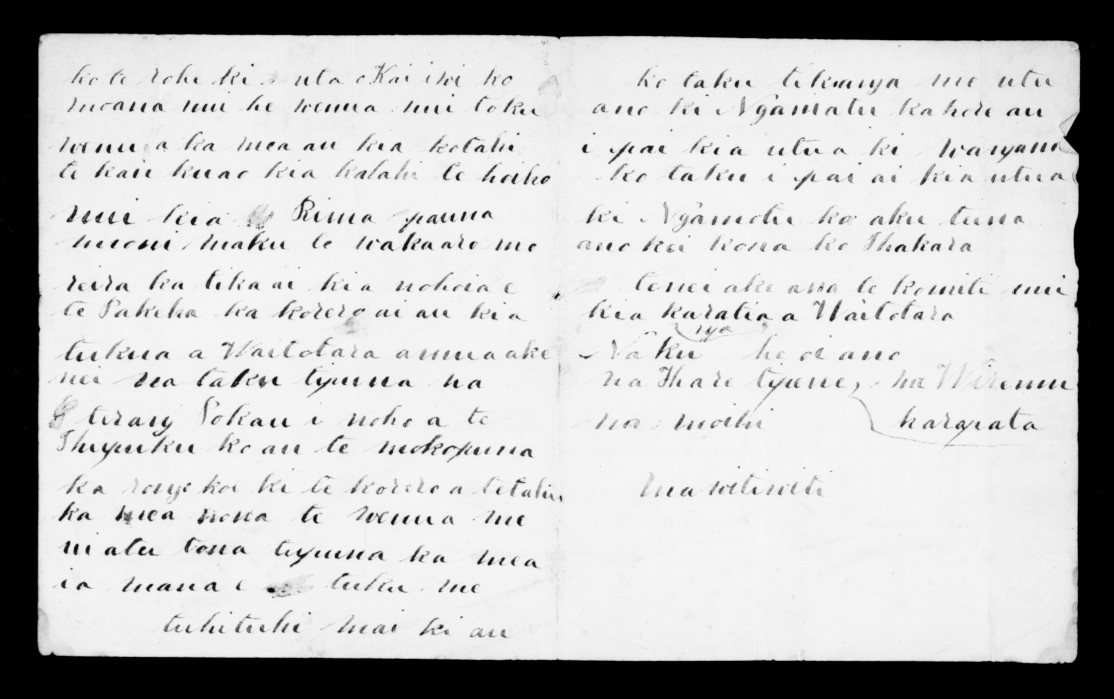 ko te rohi ki uta Kai iwi ko
moana nui he wenua nui toku
wenua ka mea au kia kotahi
te kau kuao kia kalahi te hoiho
nui kia Rima pauna
moni maku te wakaaro mo
reira ka tika ai kia nohoia e
te Pakeha ka korero ai au kia
tukua a Waitotara amua ake
nei na taku tipuna na
Pokau i noho a te
Ihupuku ko au te mokopuna
ka rongo koe ki te korero a tetahi
ka mea nona te wenua me
ui atu tona tupuna ka mea
ia mana e tuku me
tuhituhi mai ki au
ko taku tikanga me utu
ano ki Ngamatu kahore au
i pai kia utua ki
ko taku i pai ai kia utua
ki Ngamotu ko aku tuna
ano kei kona ko Ihakara
tenei ake ano te komiti nui
kia karatia a Waitotara
nga
Naku heoi ano
na Ihare na Wiremu
na moihi harapata
ma witiwiti